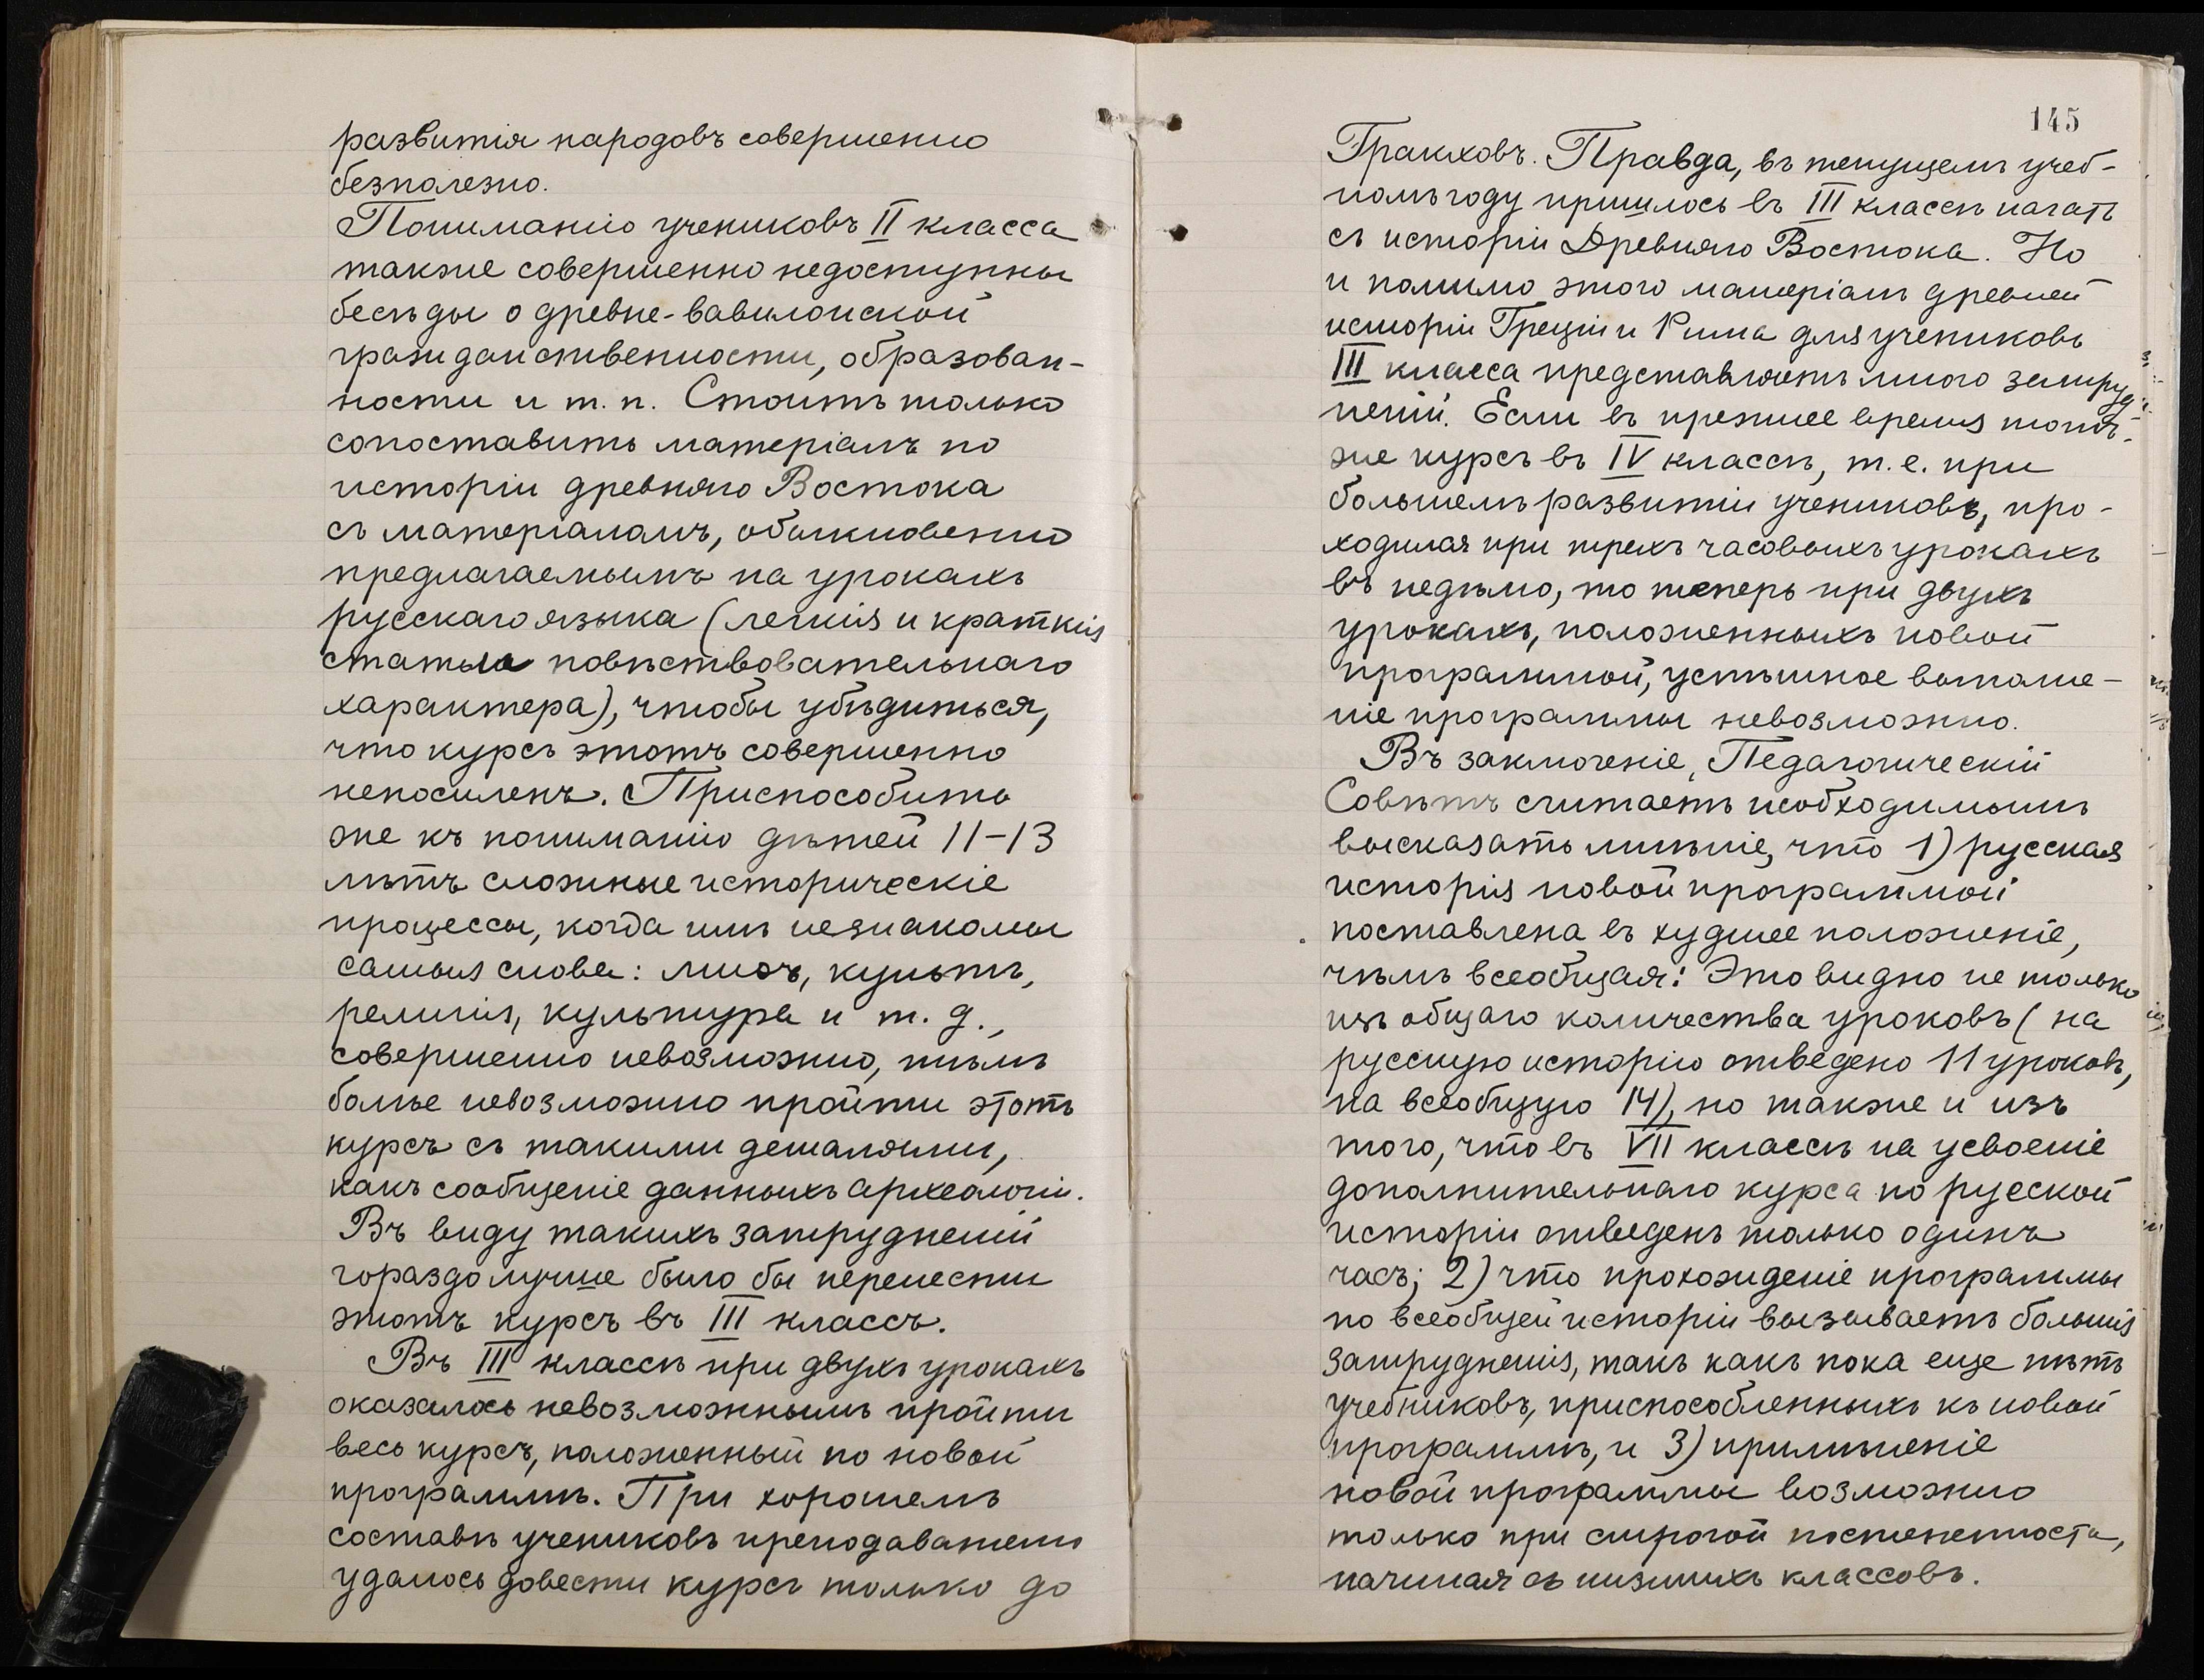 развитія народовъ совершенно
безполезно.
Пониманію учениковъ II класса
также совершенно недоступны
бесѣды о древне-вавилонской
гражданственности, образован-
ности и т. п. Стоитъ только
сопоставить матеріалъ по
исторіи древняго Востока
съ матеріаломъ, обыкновенно
предлагаемымъ на урокахъ
русскаго языка (легкія и краткія
статьи повѣствовательнаго
характера), чтобы убѣдиться,
что курсъ этотъ совершенно
непосиленъ. Приспособить
же къ пониманію дѣтей 11-13
лѣтъ сложные историческіе
процессы, когда имъ незнакомы
самыя слова: миѳъ, культъ,
религія, культура и т. д.,
совершенно невозможно, тѣмъ
болѣе невозможно пройти этотъ
курсъ съ такими деталями,
какъ сообщеніе данныхъ археологіи.
Въ виду такихъ затрудненій
гораздо лучше было бы перенести
этотъ курсъ въ III классъ.
Въ III классѣ при двухъ урокахъ
оказалось невозможнымъ пройти
весь курсъ, положенный по новой
программѣ. При хорошемъ
составѣ учениковъ преподавателю
удалось довести курсъ только до
145
Гракховъ. Правда, въ текущемъ учеб-
номъ году пришлось въ III классѣ начать
съ исторіи Древняго Востока. Но
и помимо этого матеріалъ древней
исторіи Греціи и Рима для учениковъ
III класса представляетъ много затруд-
неній. Если въ прежнее время тотъ-
же курсъ въ IV классѣ, т. е. при
большемъ развитіи учениковъ, про-
ходился при трехъ часовыхъ урокахъ
въ недѣлю, то теперь при двухъ
урокахъ, положенныхъ новой
программой, успѣшное выполне-
ніе программы невозможно.
Въ заключеніе, Педагогическій
Совѣтъ считаетъ необходимымъ
высказать мнѣніе, что 1) русская
исторія новой программой
поставлена въ худшее положеніе,
чѣмъ всеобщая: Это видно не только
изъ общаго количества уроковъ (на
русскую исторію отведено 11 уроковъ,
на всеобщую 14), но также и изъ
того, что въ VII классѣ на усвоеніе
дополнительнаго курса по русской
исторіи отведенъ только одинъ
часъ; 2) что прохожденіе программы
по всеобщей исторіи вызываетъ большія
затрудненія, такъ какъ пока еще нѣтъ
учебниковъ, приспособленныхъ къ новой
программѣ, и 3) примѣненіе
новой программы возможно
только при строгой постепенности,
начиная съ низшихъ классовъ.